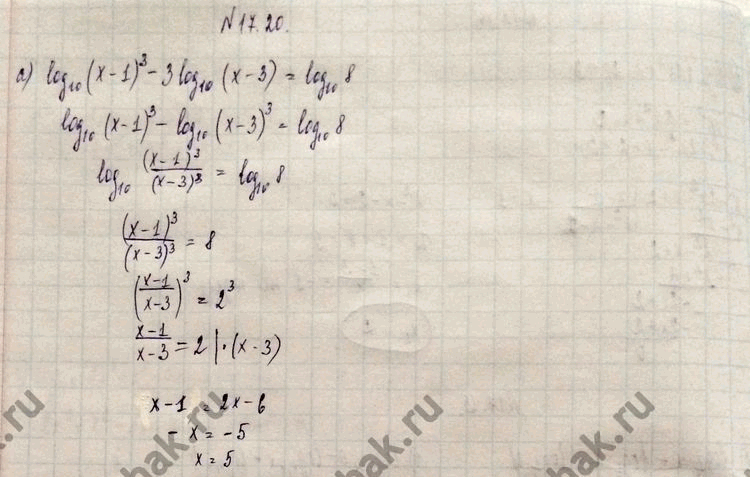 №17.20.
а) log₁₀(x-1)³-3log₁₀(x-3)=log₁₀8
log₁₀(x-1)³-log₁₀(x-3)³=log₁₀8
log₁₀ (x-1)³/(x-3)³ = log₁₀8
(x-1)³/(x-3)³ = 8
((x-1)/(x-3))³ = 2³
(x-1)/(x-3) = 2 |·(x-3)
x-1 = 2x-6
-x = -5
x = 5
ak.ru
bak.ru
hak.ru